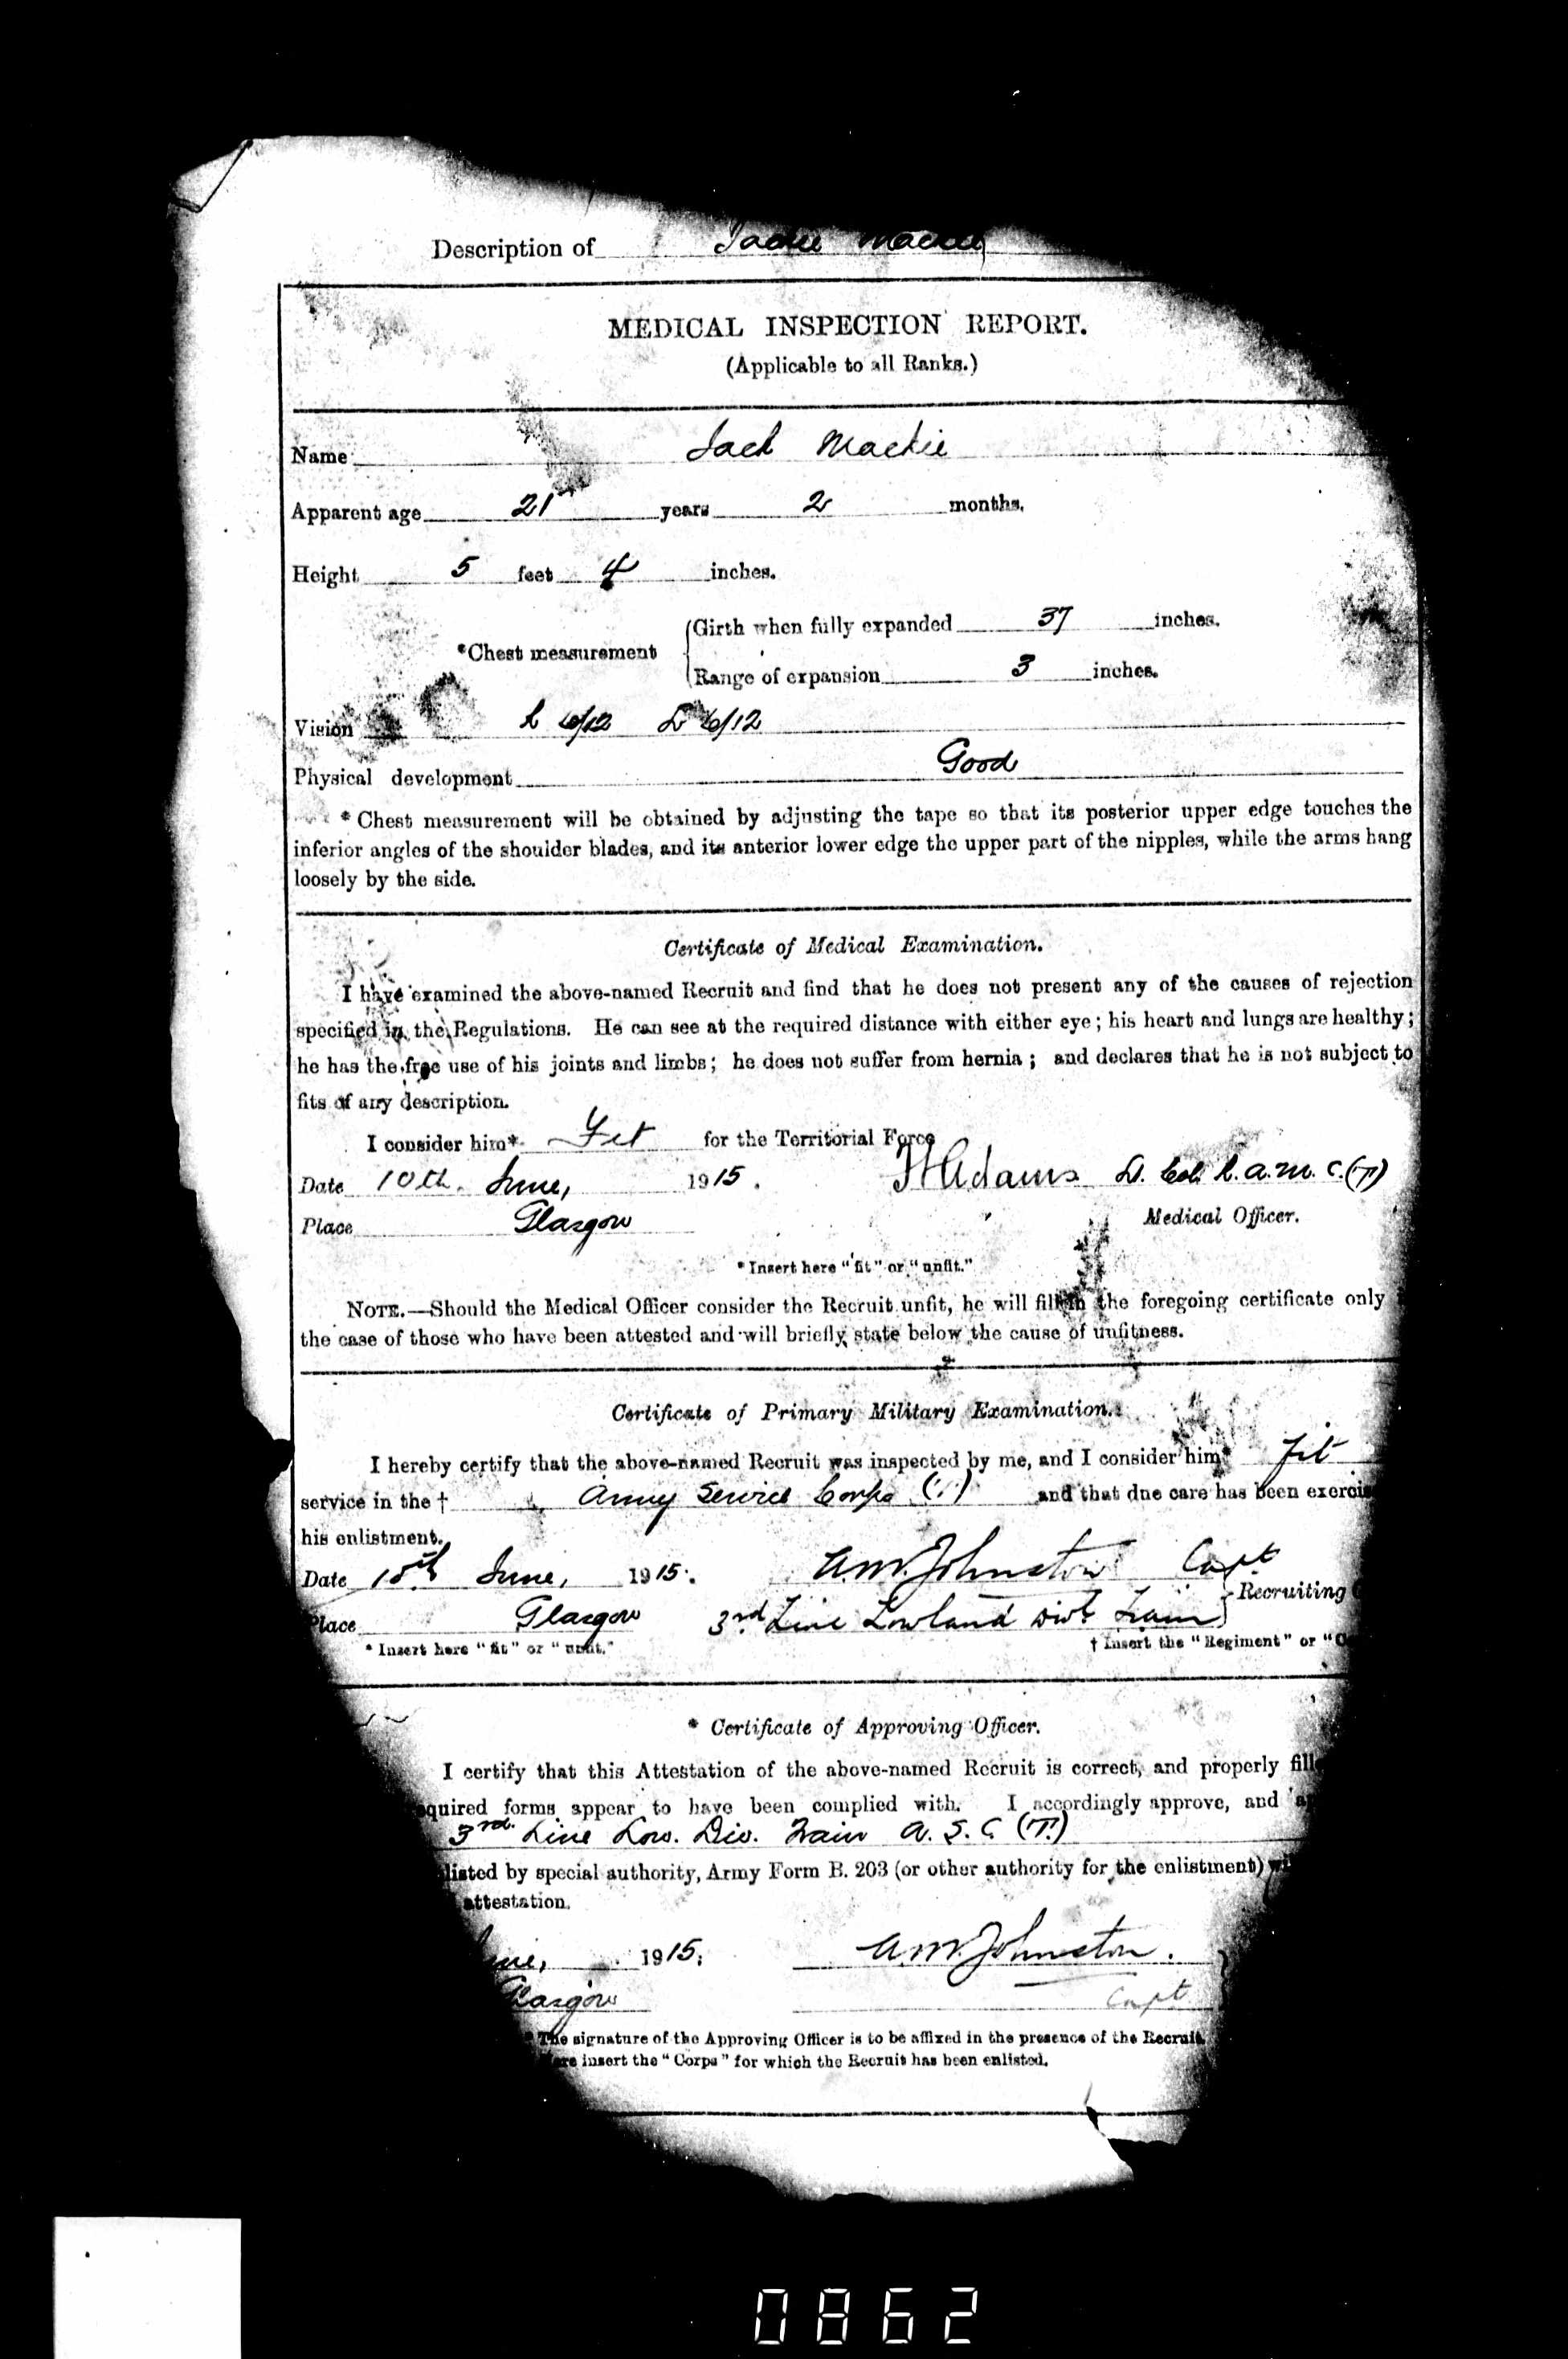 Description of Jackie Mackie
MEDICAL INSPECTION REPORT.
(Applicable to all Ranks.)
Name Jack Mackie
Apparent age 21 years 2 months.
Height 5 feet 4 inches.
Girth when fully expanded 37 inches.
*Chest measurement
Range of expansion 3 inches.
Vision R 6/12 L 6/12
Physical development Good
* Chest measurement will be obtained by adjusting the tape so that its posterior upper edge touches the
inferior angles of the shoulder blades, and its anterior lower edge the upper part of the nipples, while the arms hang
loosely by the side.
Certificate of Medical Examination.
I have examined the above-named Recruit and find that he does not present any of the causes of rejection
specified in the Regulations. He can see at the required distance with either eye; his heart and lungs are healthy;
he has the free use of his joints and limbs; he does not suffer from hernia; and declares that he is not subject to
fits of any description.
I consider him* Fit for the Territorial Force
Date 10th. June, 1915. Adams Lt. Col. R.A.M.C.(T)
Place Glasgow Medical Officer.
*Insert here "fit" or "unfit."
NOTE.—Should the Medical Officer consider the Recruit unfit, he will fill in the foregoing certificate only
the case of those who have been attested and will briefly state below the cause of unfitness.
Certificate of Primary Military Examination.
I hereby certify that the above-named Recruit was inspected by me, and I consider him* fit
service in the † Army Service Corps (T) and that due care has been exercis
his enlistment.
Date 10th June, 1915. A.M. Johnston Capt
Recruiting
Place Glasgow 3rd Line Lowland Divl. Train
* Insert here "fit" or "unfit." † Insert the "Regiment" or "C
* Certificate of Approving Officer.
I certify that this Attestation of the above-named Recruit is correct, and properly fille
quired forms appear to have been complied with. I accordingly approve, and ap
3rd. Line Low. Div. Train A.S.C. (T.)
listed by special authority, Army Form B. 203 (or other authority for the enlistment) wi
attestation.
une, 1915. A.M. Johnston.
Glasgow Capt
* The signature of the Approving Officer is to be affixed in the presence of the Recruit.
Here insert the "Corps" for which the Recruit has been enlisted.
0862